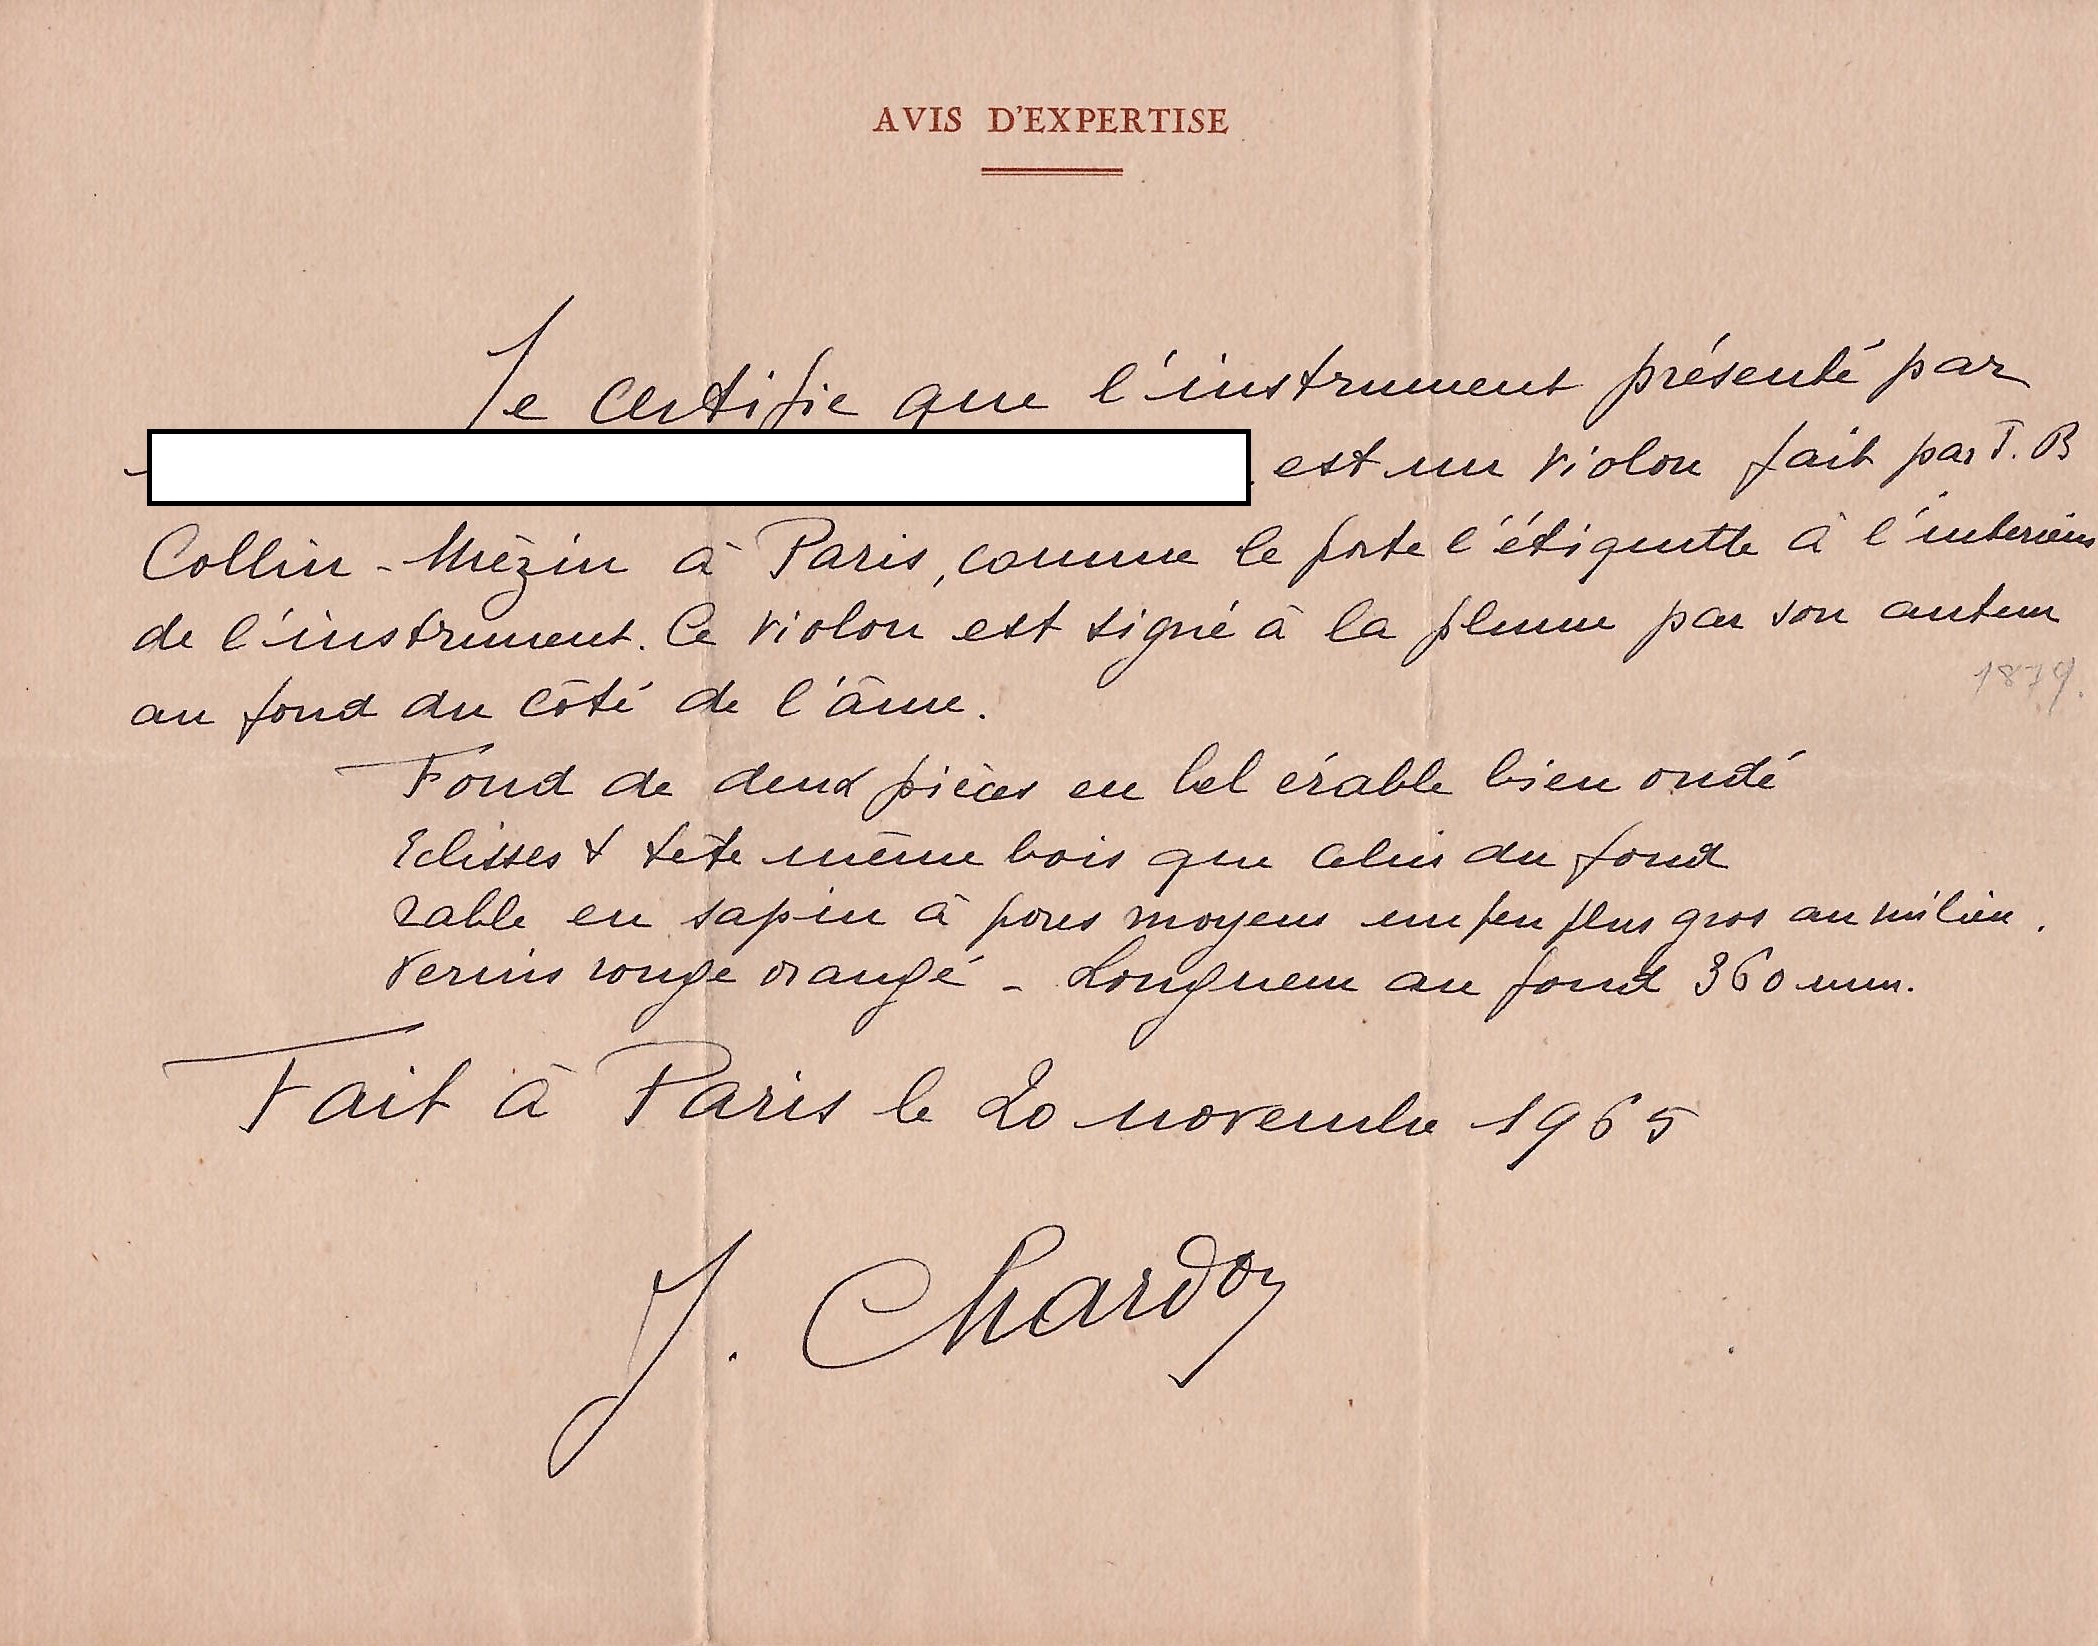 AVIS D'EXPERTISE
Je certifie que l'instrument présenté par
est un violon fait par J. B
Collin-Mézin à Paris, comme le porte l'étiquette à l'interieur
de l'instrument. Ce violon est signé à la plume par son auteur
1879.
au fond du côté de l'âme.
Fond de deux pièces en bel érable bien ondé
Eclisses & tête même bois que celui du fond
Table en sapin à pores moyens un peu plus gros au milieu.
Vernis rouge orangé - Longueur au fond 360 mm.
Fait à Paris le 20 novembre 1965
J. Chardon